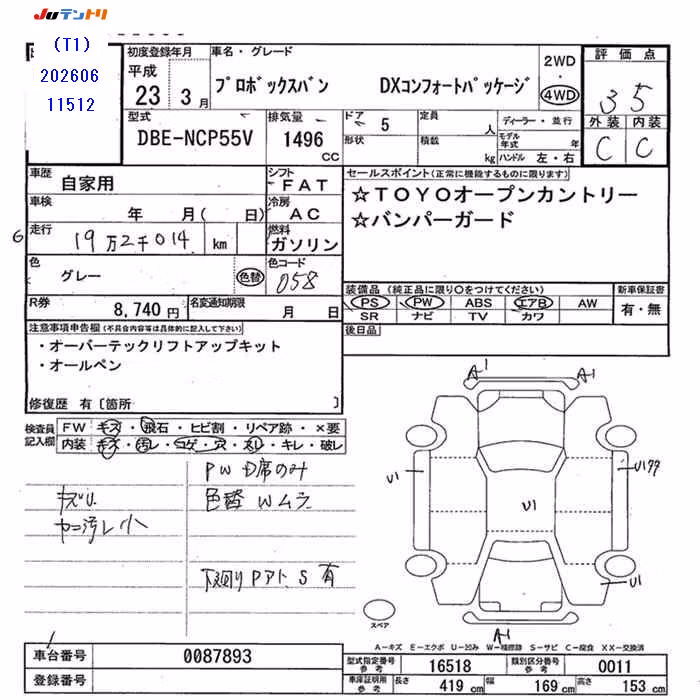 JUテントリ
(T1)
202606
11512
初度登録年月
平成
23 3月
車名・グレード
プロボックスバン DXコンフォートパッケージ
2WD
・
4WD
評価点
3 5
外装 内装
C C
型式
DBE-NCP55V
排気量
1496
CC
ドア 5
形状
定員 人
積載 kg
ディーラー・並行
モデル年式 年
ハンドル 左・右
車歴 自家用
シフト FAT
車検 年 月( 日)
冷房 AC
走行 19万2千014 km
6
燃料 ガソリン
色 グレー 色替
色コード 058
R券 8,740円
名変通知期限 月 日
セールスポイント(正常に機能するものに限ります)
☆TOYOオープンカントリー
☆バンパーガード
装備品(純正品に限り○をつけてください)
PS PW ABS エアB AW
SR ナビ TV カワ
新車保証書
有・無
後日品
注意事項申告欄(不具合内容等は具体的に記入して下さい)
・オーバーテックリフトアップキット
・オールペン
修復歴 有〔箇所 〕
検査員記入欄
FW キズ・飛石・ヒビ割・リペア跡・×要
内装 キズ・汚レ・コゲ・穴・スレ・キレ・破レ
PW D席のみ
キズU
色替 Wムラ
ヤニ汚レ小
下廻りPアト、S有
A1 A1
U1 U1
U1
U1
A1
スペア
A－キズ E－エクボ U－凹み W－補修跡 S－サビ C－腐食 XX－交換済
車台番号 0087893
登録番号
型式指定番号参考 16518
類別区分番号参考 0011
車庫証明用参考 長さ 419cm 幅 169cm 高さ 153cm